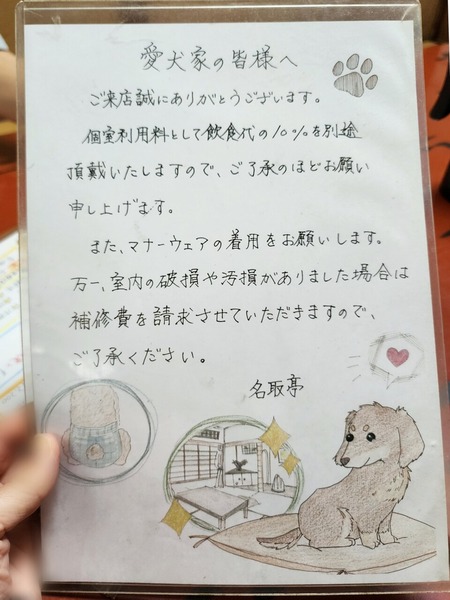 愛犬家の皆様へ
ご来店誠にありがとうございます。
個室利用料として飲食代の10%を別途
頂戴いたしますので、ご了承のほどお願い
申し上げます。
また、マナーウェアの着用をお願いします。
万一、室内の破損や汚損がありました場合は
補修費を請求させていただきますので、
ご了承ください。
名取亭